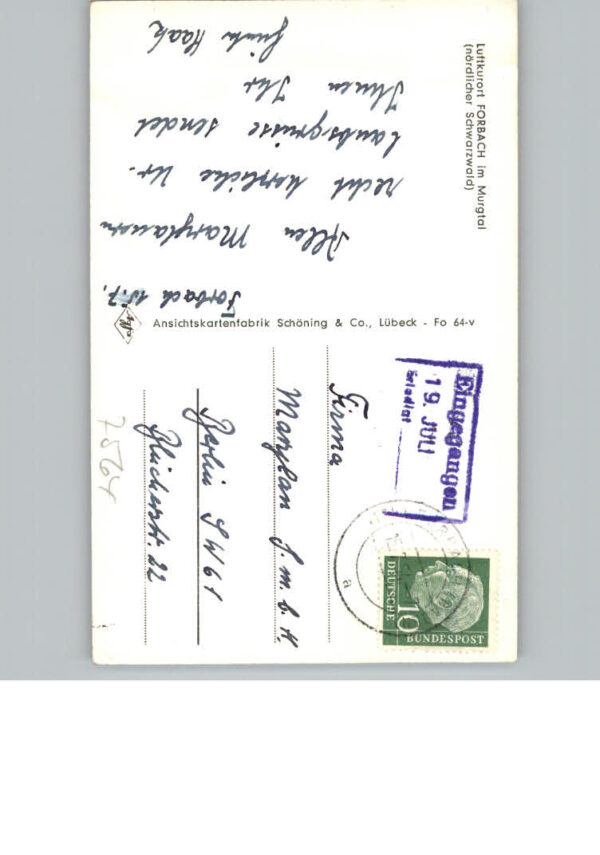 Luftkurort FORBACH im Murgtal
(nördlicher Schwarzwald)
Forbach 15.7.
Allen Marylanern
recht herzliche Ur-
laubsgrüsse sendet
Ihnen Ihr
Haak
Agfa
Ansichtskartenfabrik Schöning & Co., Lübeck - Fo 64-v
Eingegangen
19. JULI
Erledigt
a
DEUTSCHE
10
BUNDESPOST
Firma
Marylan G.m.b.H.
Berlin SW61
Blücherstr. 22
7564